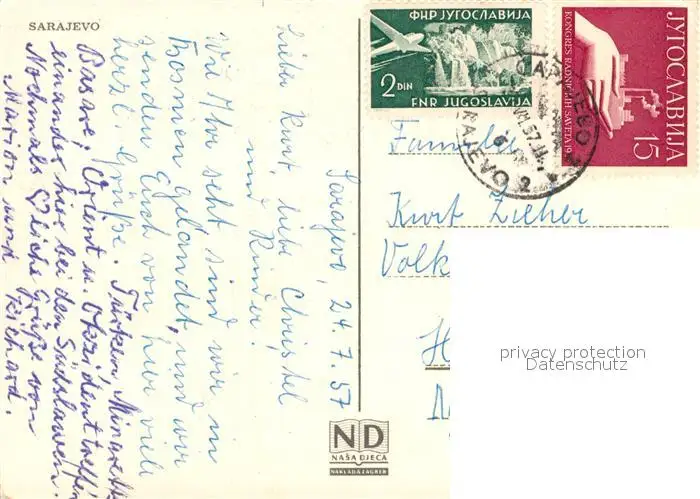 SARAJEVO
Sarajevo, 24.7.57
Lieber Kurt, liebe Christel
und Kinder.
Wie Ihr seht sind wir in
Bosnien gelandet, und wir
senden Euch von hier viele
herzl. Grüße. Türken, Minarette
Basare; Orient u. Okzident treffen
einander hier bei den Südslawen.
Nochmals herzliche Grüße von
Marion und Richard.
ФНР ЈУГОСЛАВИЈА
2 DIN
FNR JUGOSLAVIJA
ЈУГОСЛАВИЈА
KONGRES RADNIČKIH SAVETA 19
15
2
Familie
Kurt Zieher
Volk
H
privacy protection
Datenschutz
ND
NAŠA DJECA
NAKLADA ZAGREB